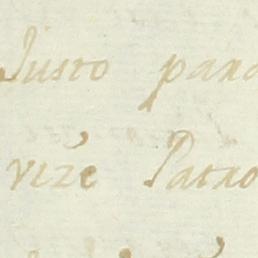 Justo para
vize Patro